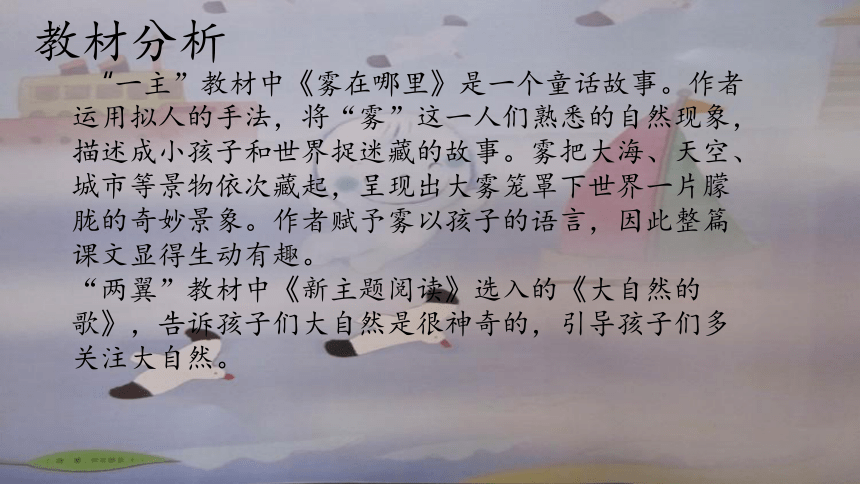 教材分析
“一主”教材中《雾在哪里》是一个童话故事。作者
运用拟人的手法，将“雾”这一人们熟悉的自然现象，
描述成小孩子和世界捉迷藏的故事。雾把大海、天空、
城市等景物依次藏起，呈现出大雾笼罩下世界一片朦
胧的奇妙景象。作者赋予雾以孩子的语言，因此整篇
课文显得生动有趣。
“两翼”教材中《新主题阅读》选入的《大自然的
歌》，告诉孩子们大自然是很神奇的，引导孩子们多
关注大自然。